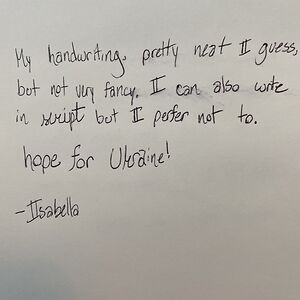 My handwriting, pretty neat I guess,
but not very fancy. I can also write
in script but I perfer not to.
hope for Ukraine!
-Isabella